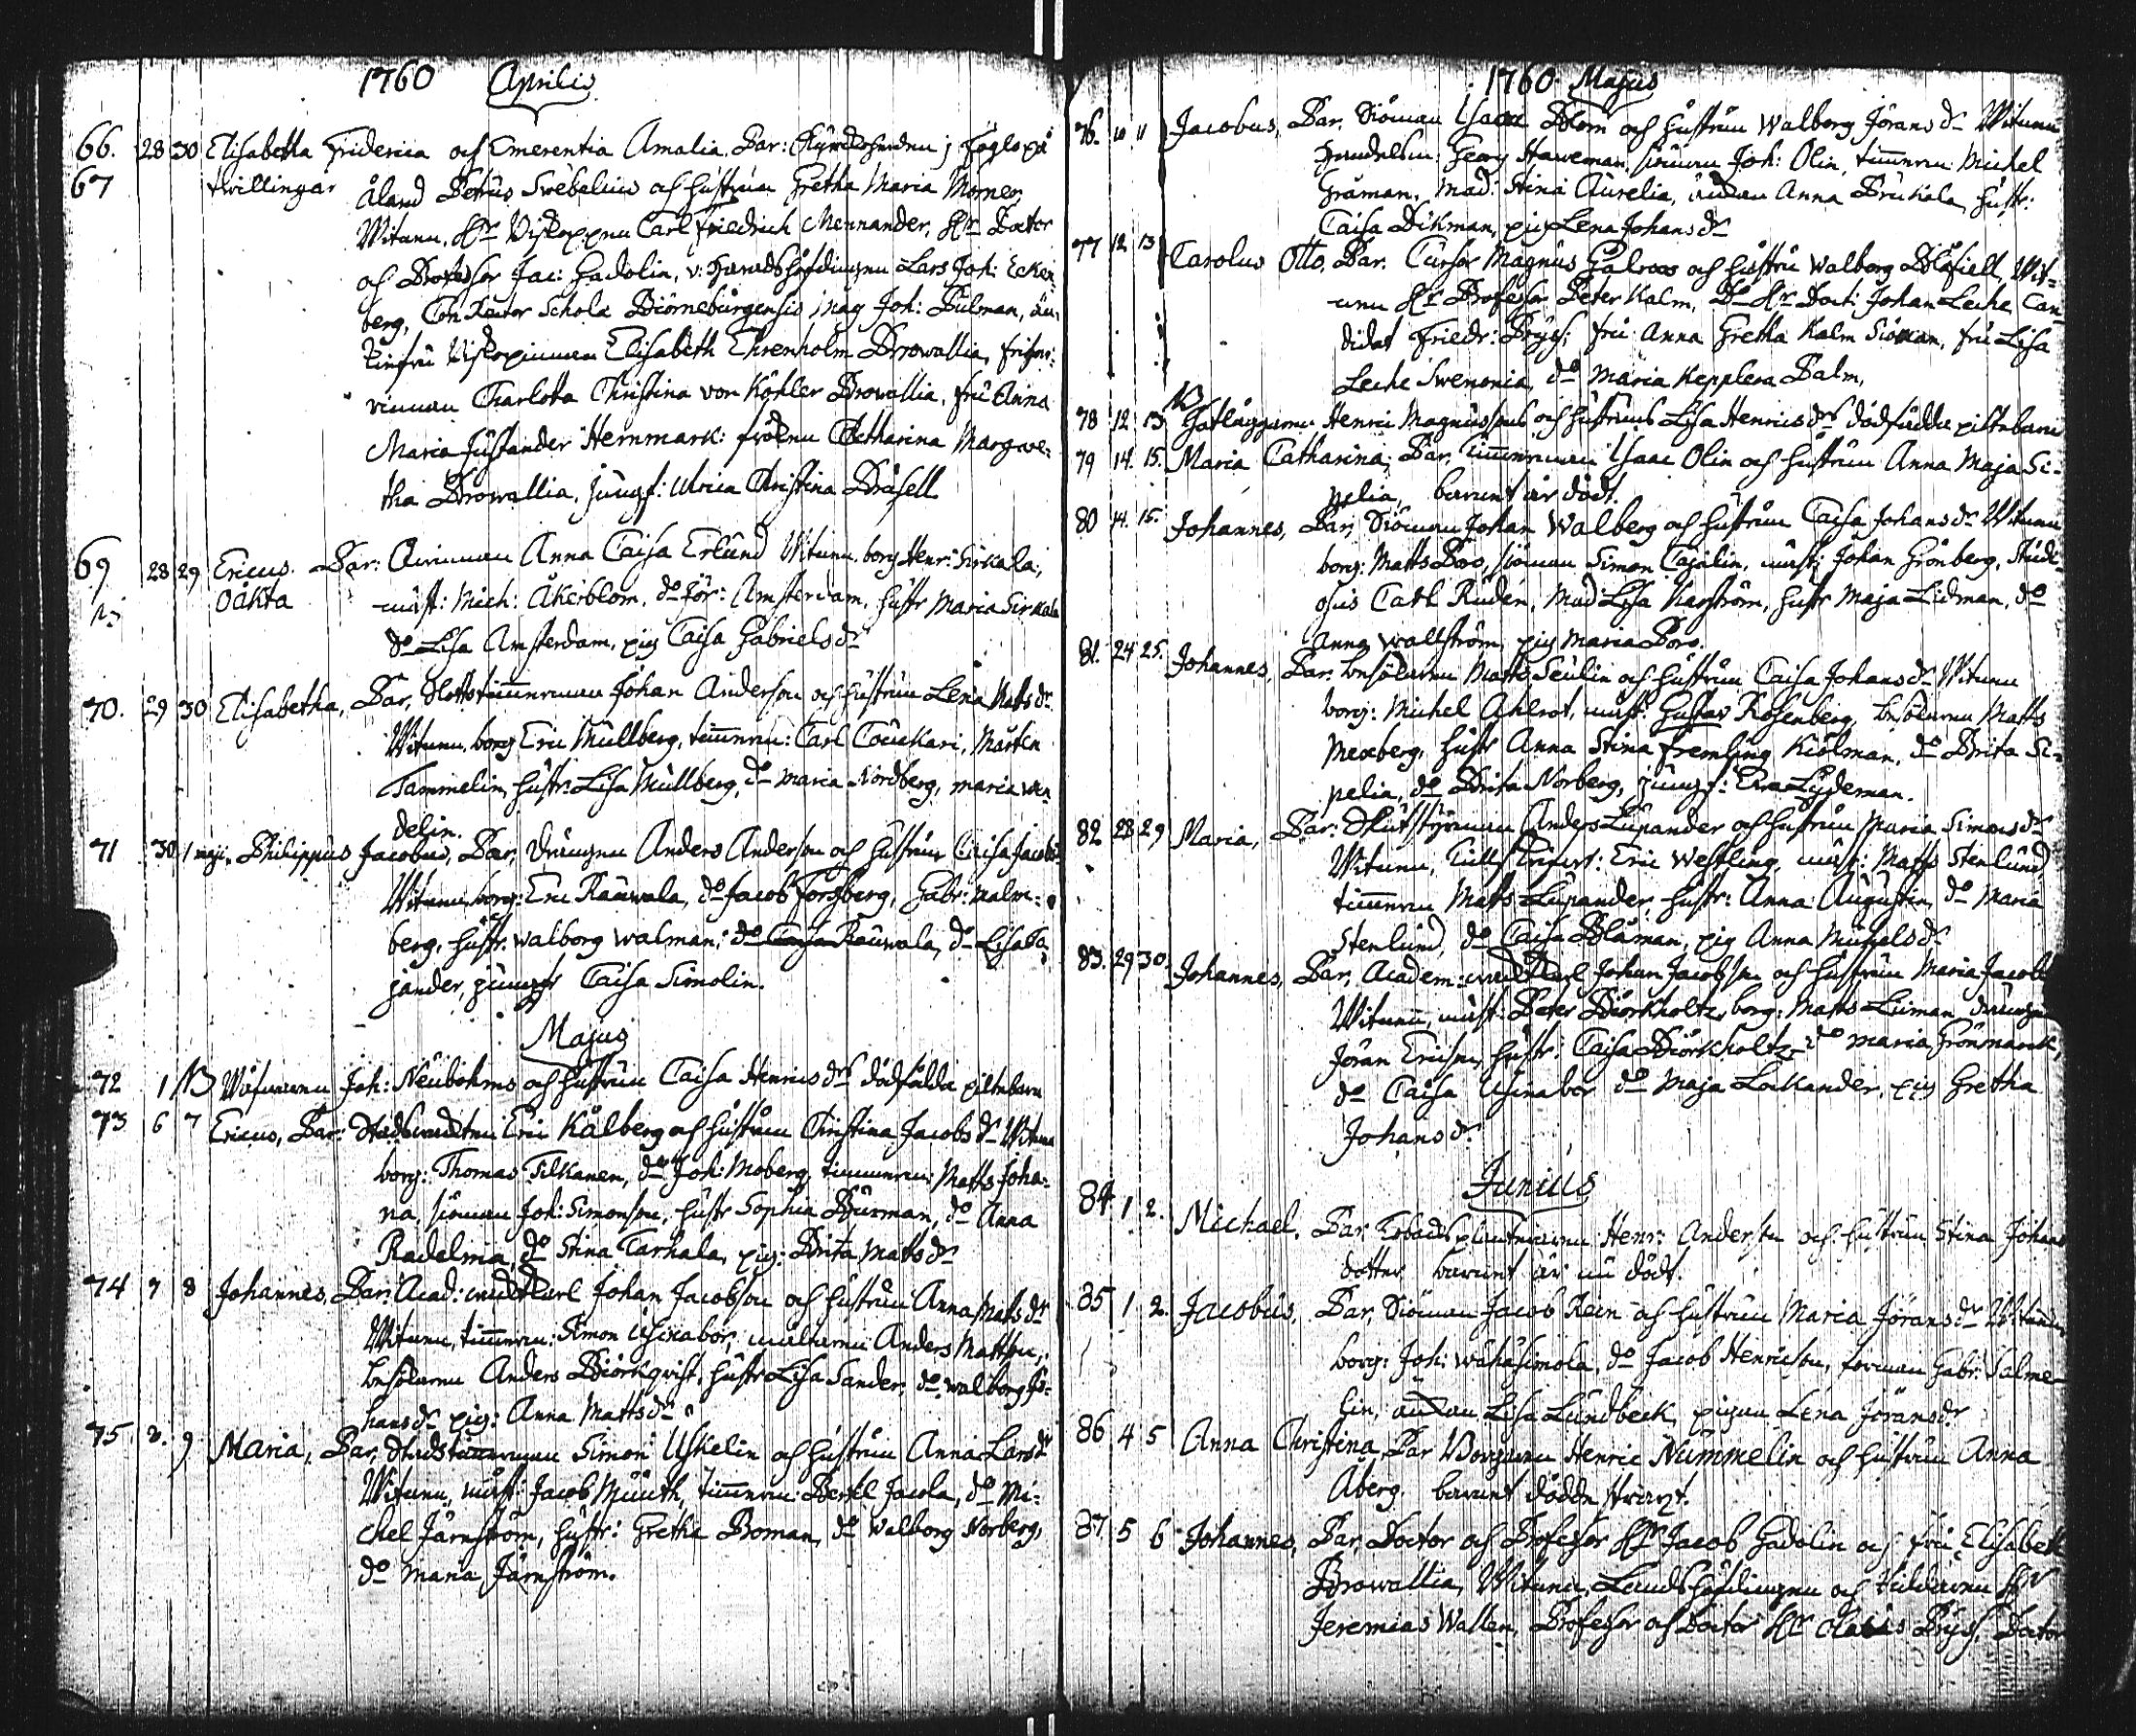 1760 Aprilis
66. 28 30 Elisabetha Friderica och Emerentia Amalia. Par: Kyrkoherden j Föglo på
67 twillingar Åland Petrus Swebelius och hustrun Gretha Maria Mörner,
Witnen, Hr Biskoppen Carl Friedrich Mennander, Hr Doctor
och Professor Jac: Gadolin, v: Häradshöfdingen Lars Joh: Ecker-
berg, Con Rector Scholæ Biörneburgensis Mag Joh: Pulman, än-
kiefru Biskopinnan Elisabeth Ehrenholm Browallia, friher-
rinnan Charlotta Christina von Köhler Browallia, fru Anna
Maria Justander Hernmark: fröken Catharina Margare-
tha Browallia, jungf: Ulrica Christina Bråsell
69 28 29 Ericus. Par: Qvinnan Anna Caisa Erlund Witnen. borg Henr: Sirkala,
Oäkta mäst: Mich: Åkerblom, do Jör: Amsterdam, hustr Maria Sirkala
do Lisa Amsterdam, pig Caisa Gabriels dr
70. 29 30 Elisabetha, Par, Slottstimmerman Johan Anderson och hustrun Lena Matts dr
Witnen, borg Eric Mullberg, timmerm: Carl Couckari, Mårten
Tammelin, hustr: Lisa Mullberg, do Maria Nordberg, Maria Wen
delin.
71 30 1 maji. Philippus Jacobus, Par, Drängen Anders Anderson och hustrun Caisa Jacobs
Witnen, borg: Eric Rauwala, do Jacob Forsberg, Gabr: Malm-
berg, hustr: Walborg Walman, do Caisa Rauwala, do Lisa Ta-
jander, jungfr Caisa Simolin.
Majus
72 1 NB Wäfwaren Joh: Neubohms och hustrun Caisa Henrics dr dödfödda piltebarn
73 6 7 Ericus, Par: Stadswachten Eric Kålberg och hustrun Christina Jacobs dr Witnen
borg: Thomas Tilkanen, do Joh: Moberg, timmerm: Matts Joha-
na, siöman Joh: Simonson, hustr Sophia Burman, do Anna
Radelinia, do Stina Tarkala, pig: Brita Matts dr
74 7 8 Johannes, Par: Acad: wacktkarl Johan Jacobson och hustrun Anna Matts dr
Witnen, timmerm: Simon Usinabor, Anders Mattson,
besökaren Anders Biörkqvist, hustr Lisa Sander, do Walborg Jo-
hans dr pig: Anna Matts dr
75 8. 9 Maria, Par, Simon Uskelin och hustrun Anna Lars dr
Witnen, mäst: Jacob Münth, timmerm: Bertel Jacola, do Mi-
chel Järnström, hustr: Gretha Boman, do Walborg Norberg,
do Maria Järnström.
1760 Majus
76. 10 11 Jacobus, Par. Siöman Isaac Blom och hustrun Walborg Jörans dr Witnen
Handelsm: Georg Haweman, siöman Joh: Olin, timmerm: Michel
Gråman, Mad: Stina Aurelia, änckan Anna Brukala, hustr:
Caisa Dikman, pig Lena Johans dr
77 12 13 Carolus Otto, Par. Cursor Magnus Galroos och hustru Walborg Blåfiell, Wit-
nen Hr Professor Peter Kalm, Do Hr Doct: Johan Leche, Can
didat Friedr: Pryss, fru Anna Gretha Kalm Siöman, fru Lisa
Leche Swenonia, do Maria Kepplera Palm,
78 12 13 NB Gatläggaren Henric Magnussons och hustruns Lisa Henrics drs dödfödda piltebarn
79 14. 15. Maria Catharina, Par, Timmerman Isaac Olin och hustrun Anna Maja Si-
pelia, barnet är dödt.
80 14. 15. Johannes, Par, Siöman Johan Walberg och hustrun Caisa Johans dr Witnen
borg: Matts Boro, siöman Simon Cajalin, mäst: Johan Grönberg, Studi
osus Carl Ruden, Mad: Lisa Karström, hustr Maja Lidman, do
Anna Wallström, pig Maria Boro.
81. 24 25. Johannes, Par. besökaren Matts Seulin och hustrun Caisa Johans dr Witnen
borg: Michel Ahlrot, mäst: Gustav Rosenberg, besökaren Matts
Mexberg, hustr Anna Stina Fremling Kiölman, do Brita Si-
pelia, do Brita Norberg, jungf: Eva Lydeman.
82 28 29 Maria, Par: Anders Lupander och hustrun Maria Simons dr
Witnen, Eric Westling, mäst: Matts Stenlund
timmerm Matts Lupander, hustr: Anna Augustin, do Maria
Stenlund, do Caisa Blåman, pig Anna Michels dr
83. 29 30. Johannes, Par, Academ: wacktkarl Johan Jacobson och hustrun Maria Jacobs
Witnen, mäst: Peter Biörkholtz, borg: Matts Liiman, drängen
Jöran Ericson, hustr: Caisa Biörkholtz, do Maria Grönmarck,
do Caisa Usinabor do Maja Lockander, pig Gretha
Johans dr
Junius
84 1 2. Michael, Par, Henr: Anderson och hustrun Stina Johans
dotter barnet är nu dödt.
85 1 2. Jacobus, Par, Siöman Jacob Rein och hustrun Maria Jörans dr Witnen,
borg: Joh: Wähäsimola, do Jacob Henricson, forman Gabr: Salme-
lin, änckan Lisa Lundbeck, pigan Lena Jörans dr
86 4 5 Anna Christina, Par Borgaren Henric Nummelin och hustrun Anna
Åberg. barnet dödde straxt.
87. 5 6 Johannes, Par, Doctor och Professor Hr Jacob Gadolin och fru Elisabeth
Browallia, Witnen, Landshöfdingen och Riddaren Hr
Jeremias Wallen, Professor och Doctor Hr Pryss, Doctor